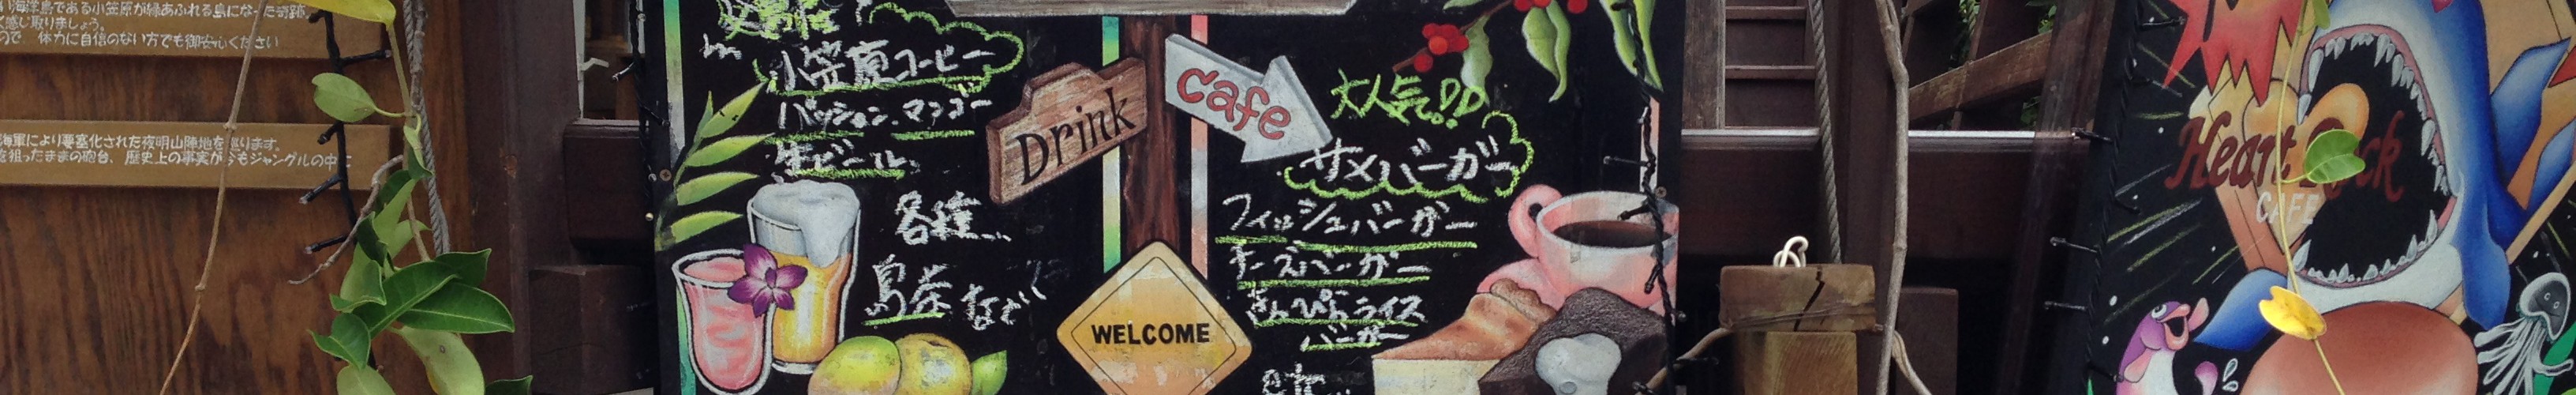 海洋島である小笠原が緑あふれる島になった奇跡
く感じ取りましょう。
ので、体力に自信のない方でも御安心ください
海軍により要塞化された夜明山陣地を巡ります。
を狙ったままの砲台、歴史上の事実が今もジャングルの中に
小笠原コーヒー
パッション、マンゴー
生ビール
各種…
島茶 など
Drink
cafe
WELCOME
大人気!!
サメバーガー
フィッシュバーガー
チーズバーガー
きんぴらライス
バーガー
etc...
Heart Rock
CAFE